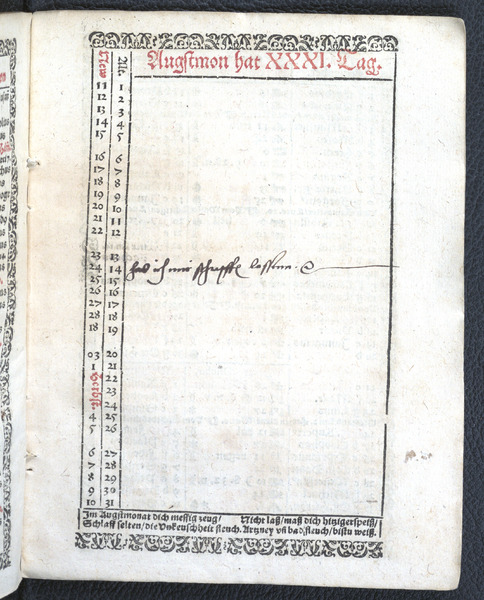 Augstmon hat XXXI. Tag.
New Alt
11 1
12 2
13 3
14 4
15 5
16 6
17 7
18 8
19 9
20 10
21 11
22 12
23 13
24 14 hab ich mir schrepffe lassenn.
25 15
26 16
27 17
28 18
18 19
03 20
1 21
Herbst. 22
23
24
4 25
5 26
6 27
7 28
8 29
9 30
10 31
Im Augstmonat dich messig zeug/ Nicht laß/ maß dich hitziger speiß/
Schlaff selten/ die Vnkeuschheit fleuch. Artzney vñ bad fleuch/ bistu weiß.